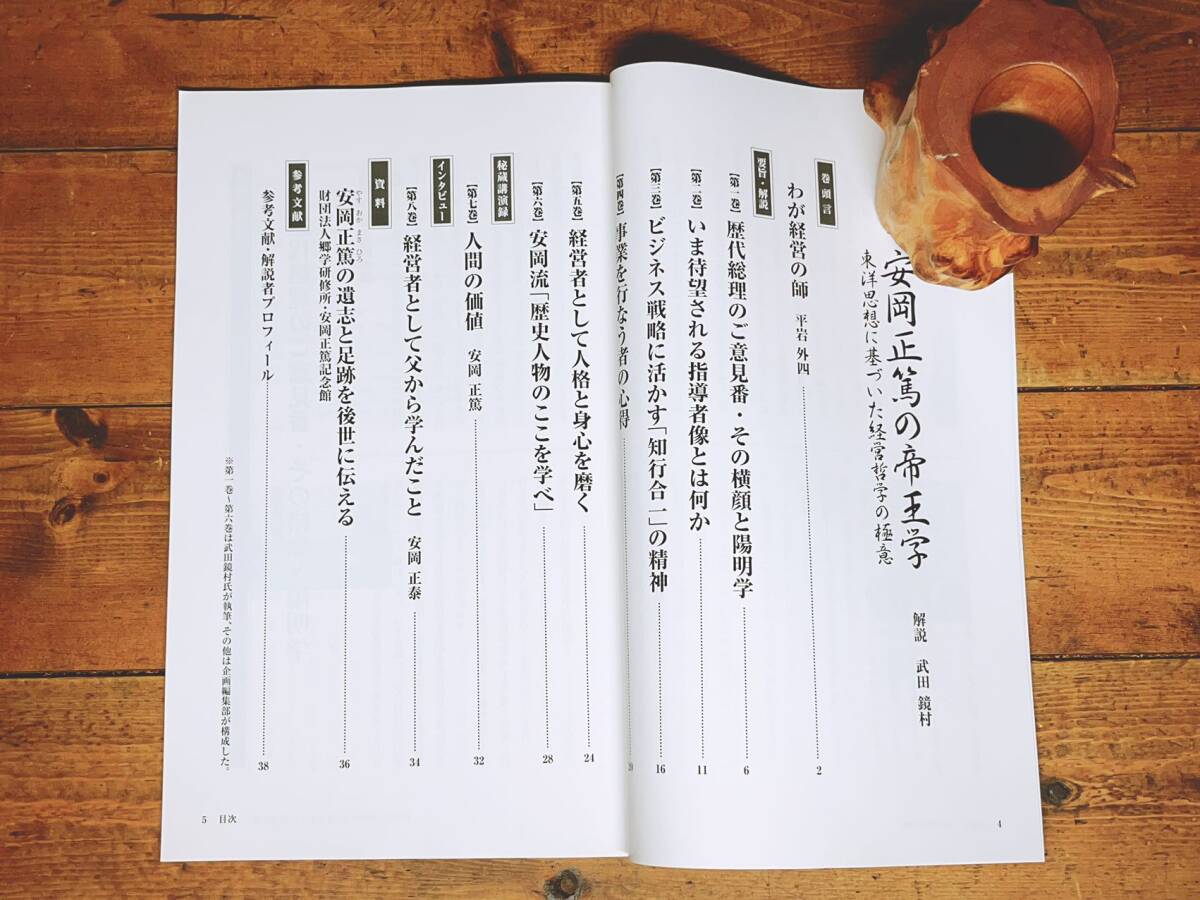 安岡正篤の帝王学
東洋思想に基づいた経営哲学の極意
解説 武田 鏡村
巻頭言
わが経営の師 平岩 外四 2
要旨・解説
【第一巻】 歴代総理のご意見番・その横顔と陽明学 6
【第二巻】 いま待望される指導者像とは何か 11
【第三巻】 ビジネス戦略に活かす「知行合一」の精神 16
【第四巻】 事業を行なう者の心得
4
【第五巻】 経営者として人格と身心を磨く 24
【第六巻】 安岡流「歴史人物のここを学べ」 28
秘蔵講演録
【第七巻】 人間の価値 安岡 正篤 32
インタビュー
【第八巻】 経営者として父から学んだこと 安岡 正泰 34
資料
安岡正篤の遺志と足跡を後世に伝える 36
やす おか まさ ひろ
財団法人郷学研修所・安岡正篤記念館
参考文献
参考文献・解説者プロフィール 38
※第一巻～第六巻は武田鏡村氏が執筆、その他は企画編集部が構成した。
5 目次